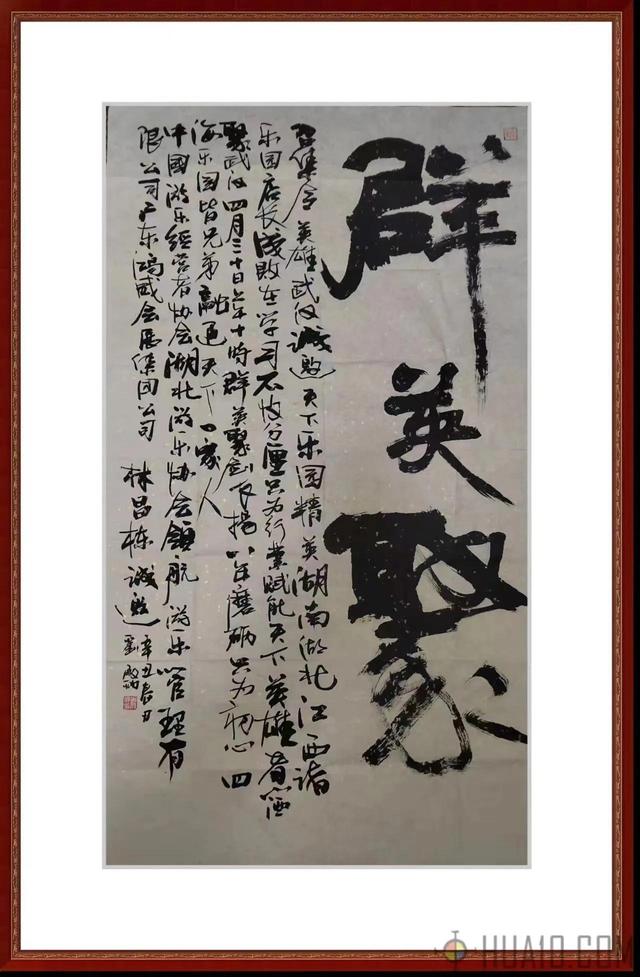 群英聚
召集令英雄武汉诚邀天下乐园精英湖南湖北江西诸
乐园店长成败在学习不分厘只为行业赋能天下英雄
聚武汉四月三十日上午十时群英聚剑长扬八年磨砺只为初心四
海乐园皆兄弟融通天下一家人
中國游乐经营者协会湖北游乐协会领航游乐管理有
限公司广东鸿威会展集团公司林昌栋诚邀辛丑春月刘
HUA10.COM